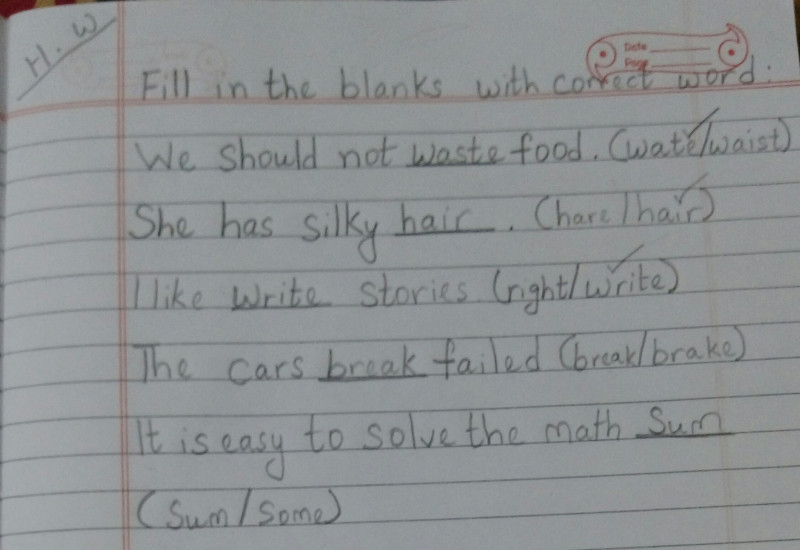 H.W
Date
Page
Fill in the blanks with correct word.
We should not waste food. (wate/waist)
She has silky hair. (hare/hair)
I like write stories. (right/write)
The cars break failed (break/brake)
It is easy to solve the math Sum
(Sum/Some)